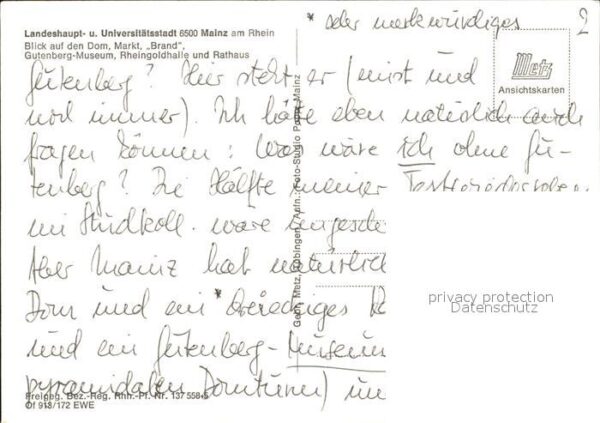 Landeshaupt- u. Universitätsstadt 6500 Mainz am Rhein
Blick auf den Dom, Markt, „Brand",
Gutenberg-Museum, Rheingoldhalle und Rathaus
* oder merkwürdiges
2
Metz
Ansichtskarten
Gutenberg? Hier steht er (mist und
noch immer). Ich hätte eben natürlich auch
fragen können: Was wäre ich ohne Gu-
tenberg? Die Hälfte meiner
im
Aber Mainz hat natürlich
Dom und ein * dreieckiges
und ein Gutenberg-Museum
pyramidalen Domturm) un
Gebr. Metz, Tübingen / Aufn.: Foto-Studio Popp, Mainz
privacy protection
Datenschutz
Freigeg. Bez.-Reg. Rhh.-Pf. Nr. 137 558-5
Of 913/172 EWE